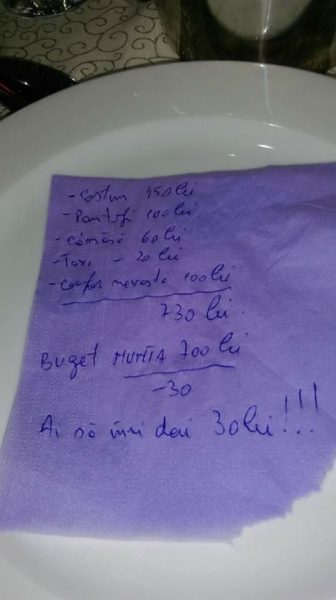 - Costum 450 lei
- Pantofi 100 lei
- Cămașă 60 lei
- Taxi - 20 lei
- Coafor nevastă 100 lei
730 lei
Buget NUNTA 700 lei
-30
Ai să îmi dai 30 lei!!!